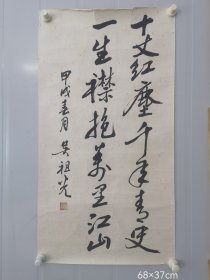 十丈红尘千年青史
一生襟抱万里江山
甲戌春月 吴祖光
68×37cm